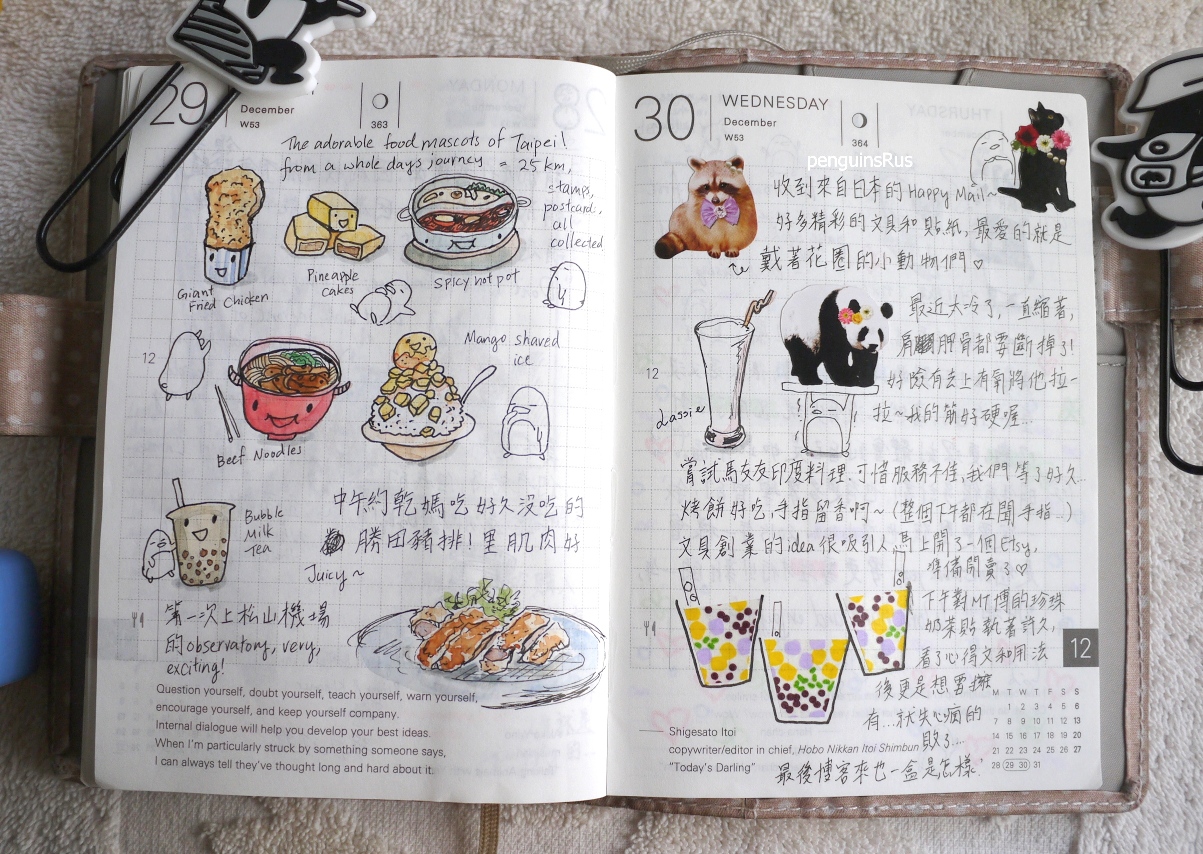 29
December
W53
363
The adorable food mascots of Taipei!
from a whole days journey = 25 km,
stamps,
postcards,
all
collected
Giant
Fried Chicken
Pineapple
Cakes
Spicy hot pot
12
Beef Noodles
Mango shaved
ice
Bubble
Milk
Tea
中午約乾媽吃好久沒吃的
勝田豬排!里肌肉好
Juicy~
第一次上松山機場
的observatory, very,
exciting!
Question yourself, doubt yourself, teach yourself, warn yourself,
encourage yourself, and keep yourself company.
Internal dialogue will help you develop your best ideas.
When I'm particularly struck by something someone says,
I can always tell they've thought long and hard about it.
30
WEDNESDAY
December
W53
364
penguinsRus
收到來自日本的Happy Mail~
好多精彩的文具和貼紙,最愛的就是
戴著花圈的小動物們♡
最近太冷了,一直縮著,
肩胛骨都要斷掉了!
好險有去上有氧將他拉-
拉~我的筋好硬喔...
12
Lassie
嘗試馬友友印度料理.可惜服務不佳,我們等了好久...
烤餅好吃,手指留香啊~(整個下午都在聞手指..)
文具創業的idea很吸引人,馬上開了一個Etsy,
準備開賣了♡
下午對MT博的珍珠
奶茶貼執著許久,
看了心得文和用法
後更是想要擁
有...就失心瘋的
敗了...
最後博客來也一盒是怎樣?
12
M T W T F S S
1 2 3 4 5 6
7 8 9 10 11 12 13
14 15 16 17 18 19 20
21 22 23 24 25 26 27
28 29 30 31
Shigesato Itoi
copywriter/editor in chief, Hobo Nikkan Itoi Shimbun
"Today's Darling"